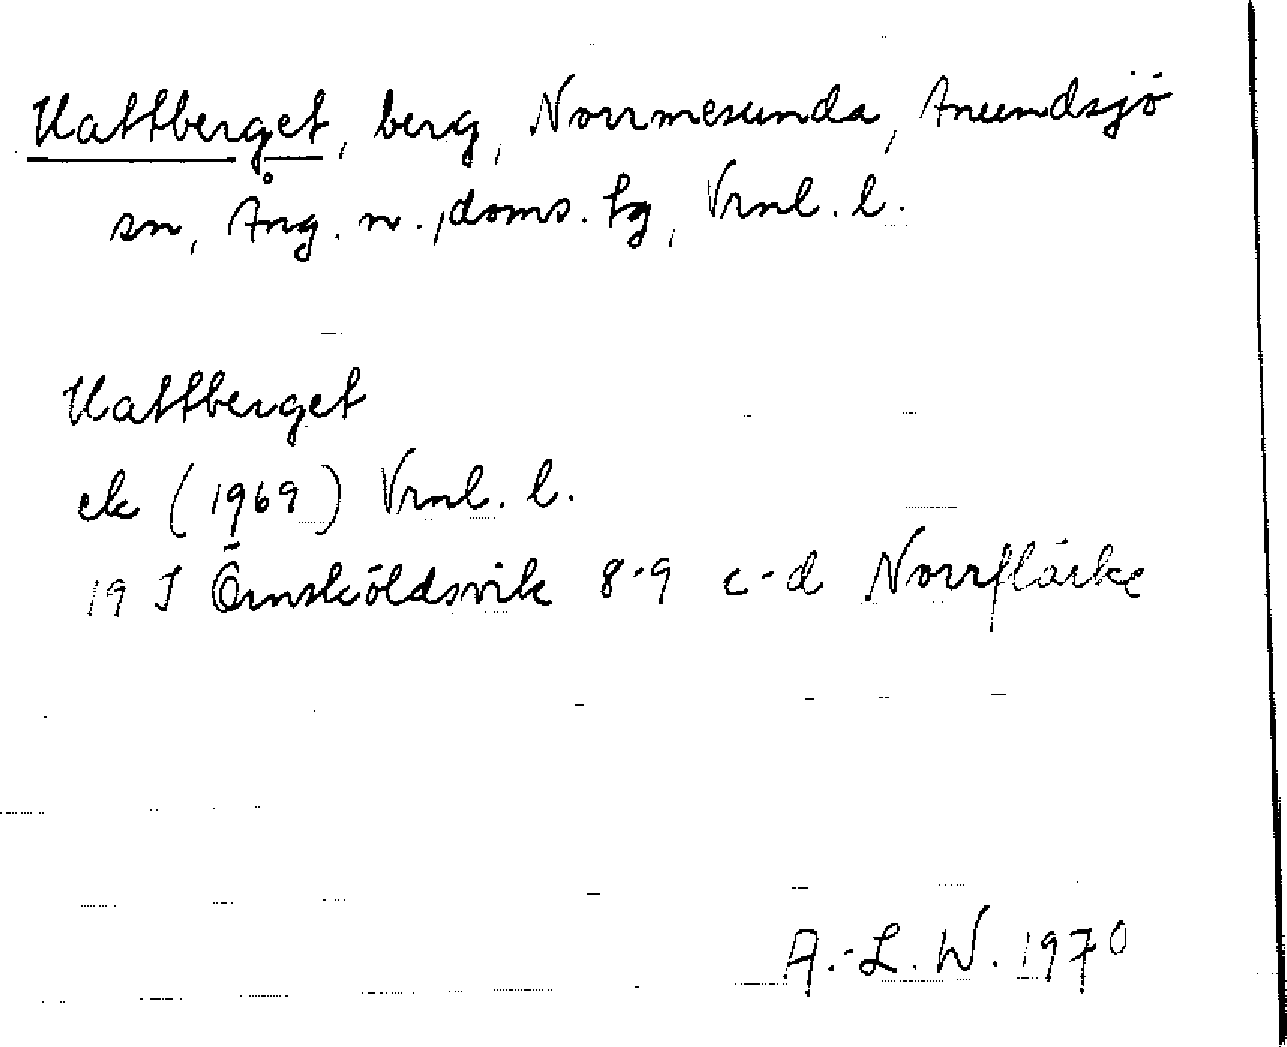 Kattberget, berg, Norrmesunda, Anundsjö
sn, Ång. n., doms. tg, Vrnl. l.
Kattberget
ek (1969) Vrnl. l.
19 J Örnsköldsvik 8-9 c-d Norrflärke
A.-L. W. 1970